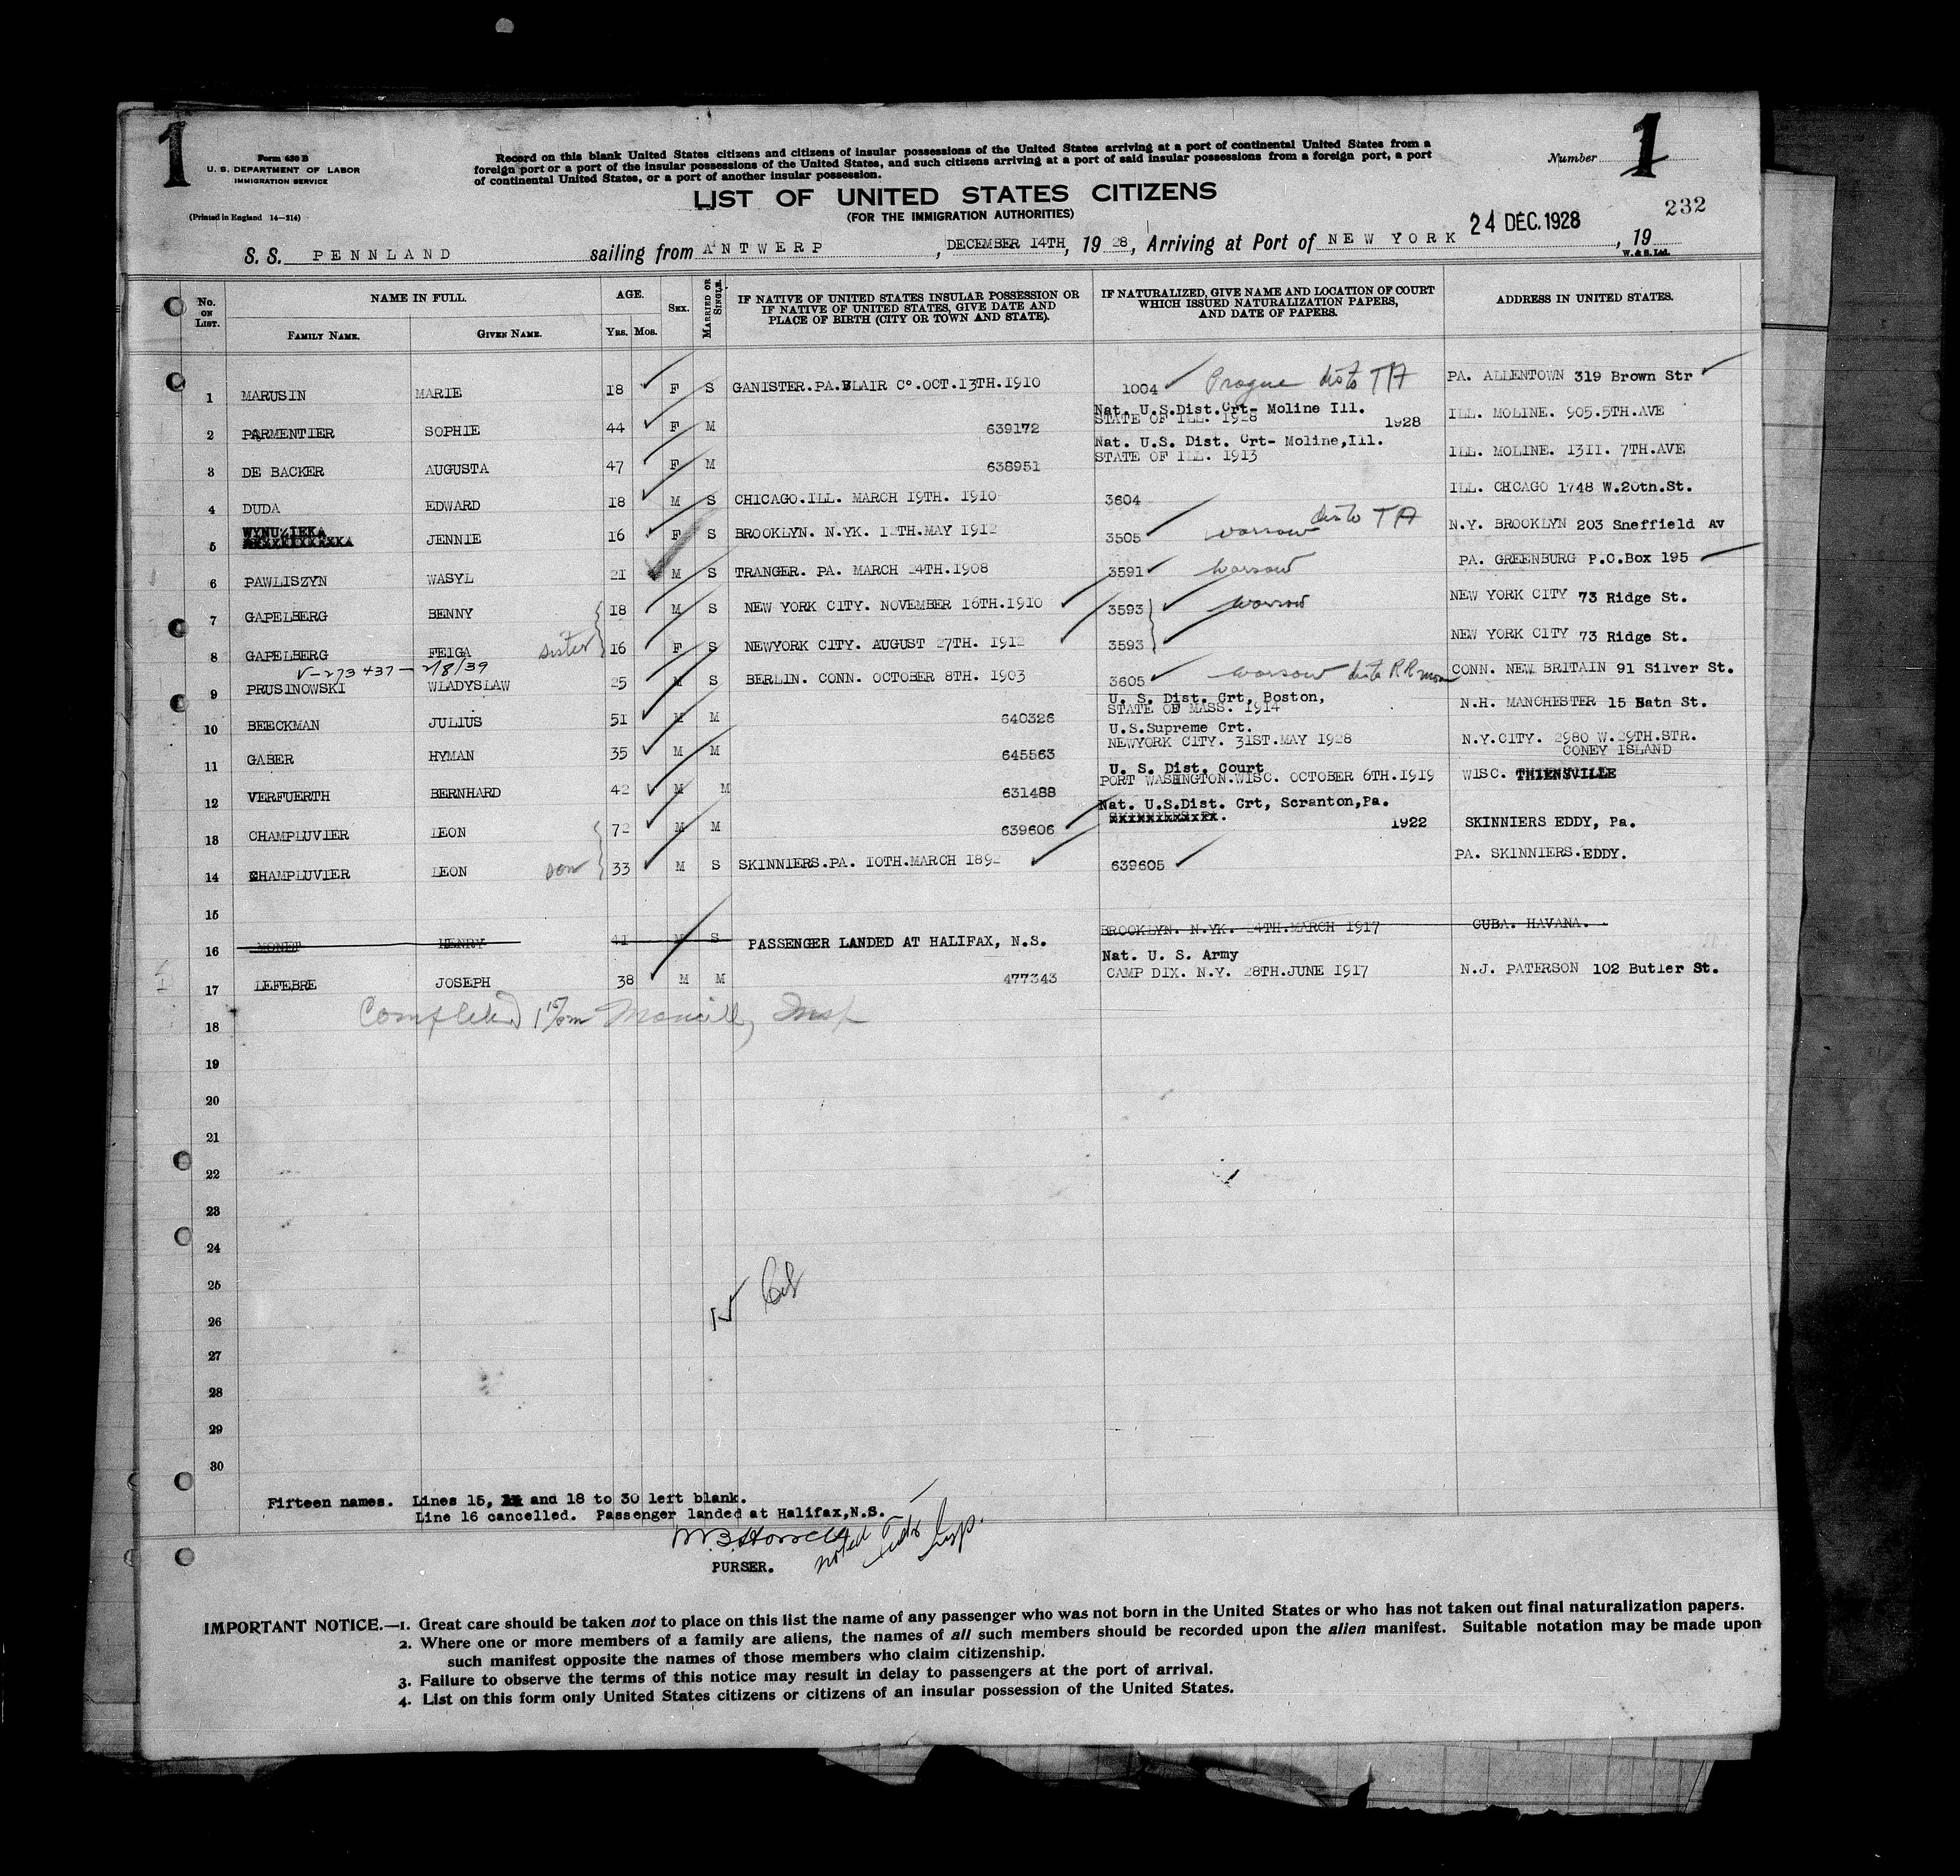 1
Form 630 B
U. S. DEPARTMENT OF LABOR
IMMIGRATION SERVICE
(Printed in England 14—214)
Record on this blank United States citizens and citizens of insular possessions of the United States arriving at a port of continental United States from a
foreign port or a port of the insular possessions of the United States, and such citizens arriving at a port of said insular possessions from a foreign port, a port
of continental United States, or a port of another insular possession.
LIST OF UNITED STATES CITIZENS
(FOR THE IMMIGRATION AUTHORITIES)
Number 1
232
S. S. PENNLAND sailing from ANTWERP, DECEMBER 14TH, 1928, Arriving at Port of NEW YORK 24 DEC. 1928, 19
W. & S. Ltd.
No. ON LIST. NAME IN FULL. AGE. SEX. MARRIED OR SINGLE. IF NATIVE OF UNITED STATES INSULAR POSSESSION OR IF NATIVE OF UNITED STATES, GIVE DATE AND PLACE OF BIRTH (CITY OR TOWN AND STATE). IF NATURALIZED, GIVE NAME AND LOCATION OF COURT WHICH ISSUED NATURALIZATION PAPERS, AND DATE OF PAPERS. ADDRESS IN UNITED STATES.
FAMILY NAME. GIVEN NAME. YRS. MOS.
1 MARUSIN MARIE 18 F S GANISTER.PA.BLAIR Co.OCT.13TH.1910 1004 Prague PA. ALLENTOWN 319 Brown Str
2 PARMENTIER SOPHIE 44 F M 639172 Nat. U.S.Dist.Crt- Moline Ill. STATE OF ILL. 1928 1928 ILL. MOLINE. 905.5TH.AVE
3 DE BACKER AUGUSTA 47 F M 638951 Nat. U.S. Dist. Crt- Moline,Ill. STATE OF ILL. 1913 ILL. MOLINE. 1311. 7TH.AVE
4 DUDA EDWARD 18 M S CHICAGO.ILL. MARCH 19TH. 1910 3604 ILL. CHCAGO 1748 W.20th.St.
5 JENNIE 16 F S BROOKLYN. N.YK. 12TH.MAY 1912 3505 Warsaw N.Y. BROOKLYN 203 Sheffield AV
6 PAWLISZYN WASYL 21 M S TRANGER. PA. MARCH 24TH.1908 3591 Warsaw PA. GREENBURG P.O.Box 195
7 GAPELBERG BENNY 18 M S NEW YORK CITY. NOVEMBER 16TH.1910 3593 Warsaw NEW YORK CITY 73 Ridge St.
8 GAPELBERG FEIGA sister 16 F S NEWYORK CITY. AUGUST 27TH. 1912 3593 NEW YORK CITY 73 Ridge St.
V-273437 — 2/8/39
9 PRUSINOWSKI WLADYSLAW 25 M S BERLIN. CONN. OCTOBER 8TH. 1903 3605 Warsaw CONN. NEW BRITAIN 91 Silver St.
10 BEECKMAN JULIUS 51 M M 640326 U. S. Dist. Crt, Boston, STATE OF MASS. 1914 N.H. MANCHESTER 15 Natn St.
11 GABER HYMAN 35 M M 645563 U.S.Supreme Crt. NEWYORK CITY. 31ST.MAY 1928 N.Y.CITY. 2980 W.29TH.STR. CONEY ISLAND
12 VERFUERTH BERNHARD 42 M M 631488 U. S. Dist. Court PORT WASHNGTON.WISC. OCTOBER 6TH.1919 WISC. THIENSVILLE
13 CHAMPLUVIER LEON 72 M M 639606 Nat. U.S.Dist. Crt, Scranton,Pa. 1922 SKINNIERS EDDY, Pa.
14 CHAMPLUVIER LEON son 33 M S SKINNIERS.PA. 10TH.MARCH 1892 639605 PA. SKINNIERS.EDDY.
15
16 MONET HENRY 41 M S PASSENGER LANDED AT HALIFAX, N.S. BROOKLYN. N.YK. 24TH.MARCH 1917 CUBA. HAVANA.
17 LEFEBRE JOSEPH 38 M M 477343 Nat. U. S. Army CAMP DIX. N.Y. 28TH.JUNE 1917 N.J. PATERSON 102 Butler St.
18 Completed Insp
19
20
21
22
23
24
25
26
27
28
29
30
Fifteen names. Lines 15, and 18 to 30 left blank.
Line 16 cancelled. Passenger landed at Halifax,N.S.
noted Insp.
PURSER.
IMPORTANT NOTICE.—1. Great care should be taken not to place on this list the name of any passenger who was not born in the United States or who has not taken out final naturalization papers.
2. Where one or more members of a family are aliens, the names of all such members should be recorded upon the alien manifest. Suitable notation may be made upon
such manifest opposite the names of those members who claim citizenship.
3. Failure to observe the terms of this notice may result in delay to passengers at the port of arrival.
4. List on this form only United States citizens or citizens of an insular possession of the United States.